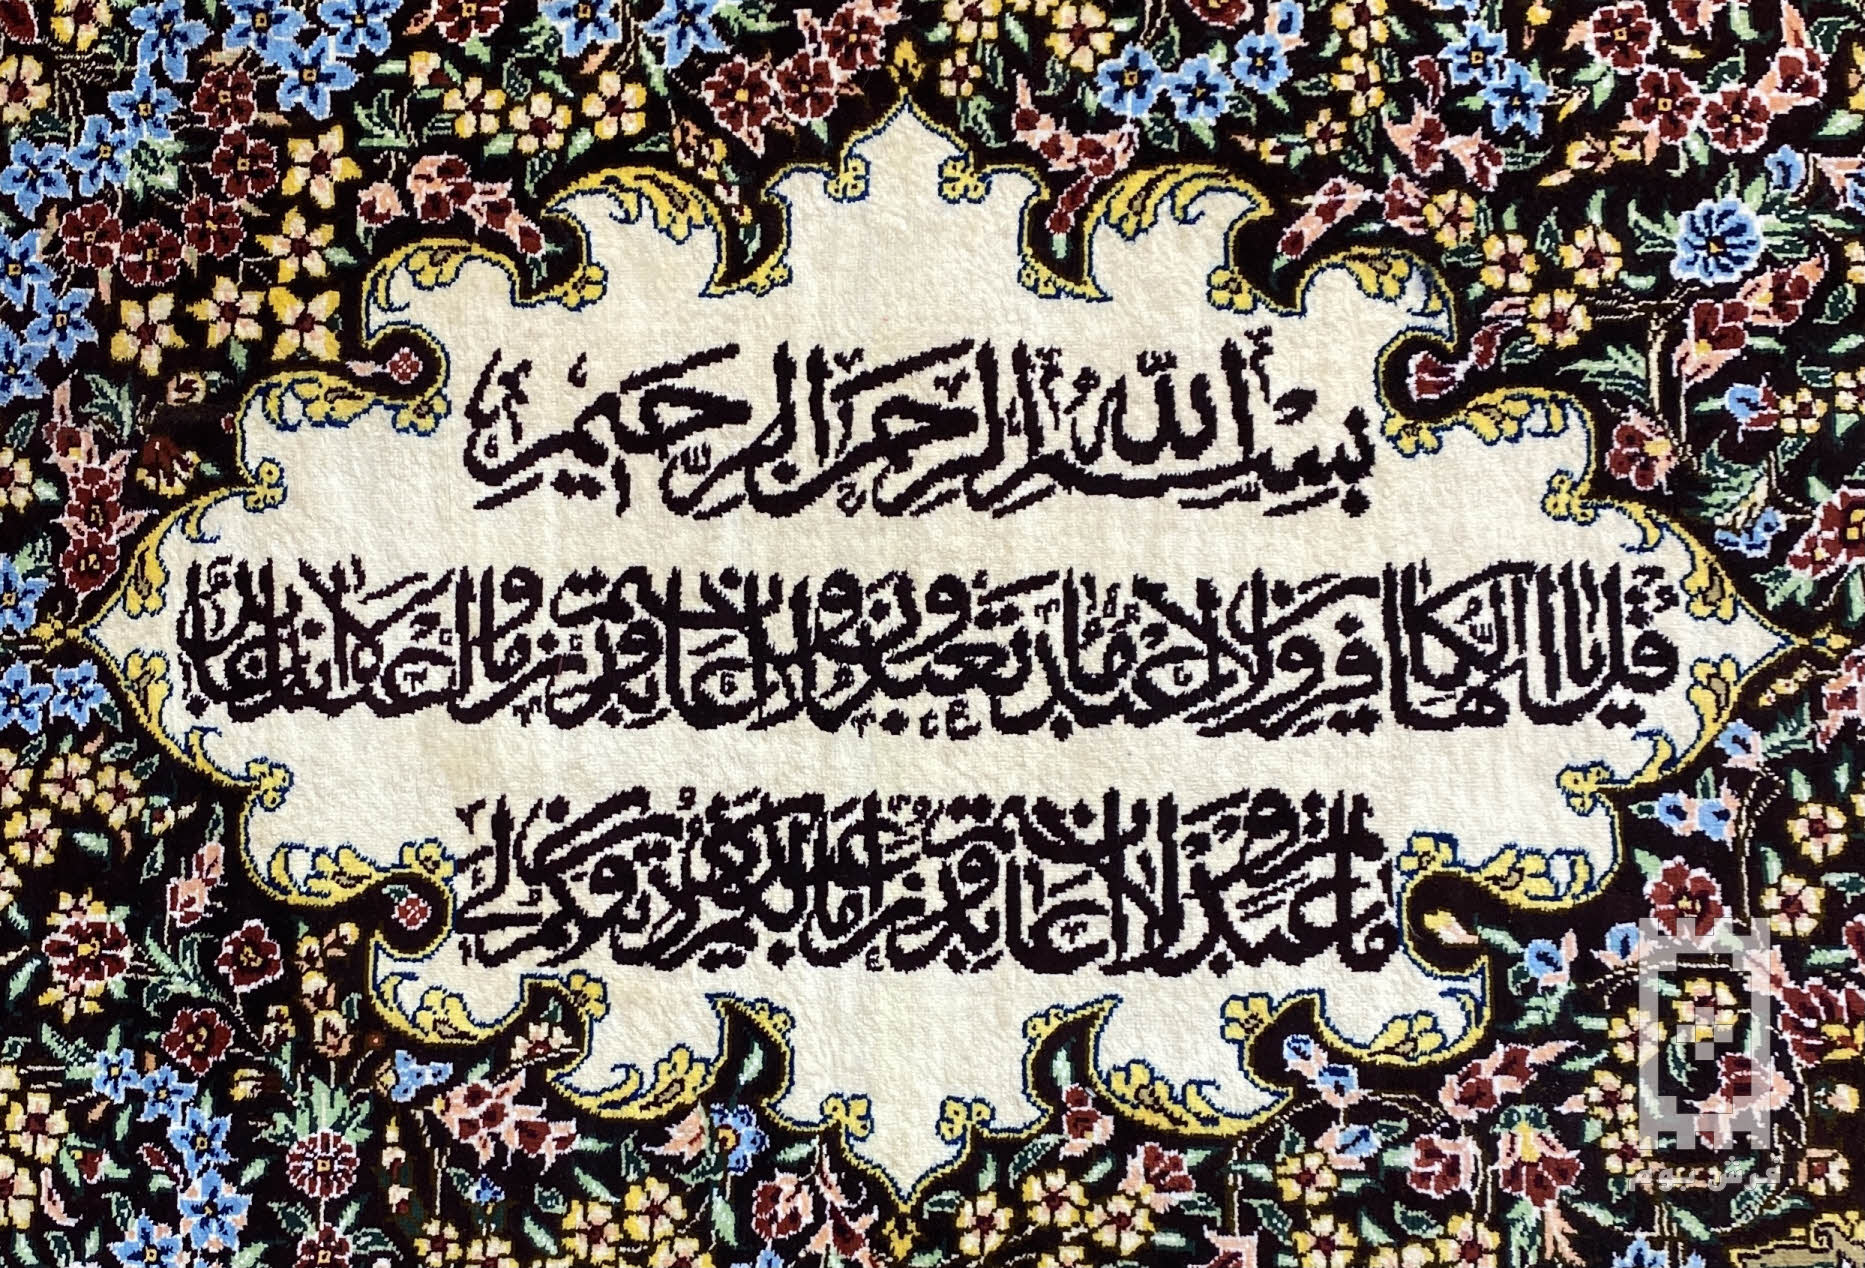 بسم الله الرحمن الرحيم
قل يا ايها الكافرون لا اعبد ما تعبدون ولا انتم عابدون ما اعبد ولا انا عابد
ما عبدتم ولا انتم عابدون ما اعبد لكم دينكم ولي دين
فرش بوم